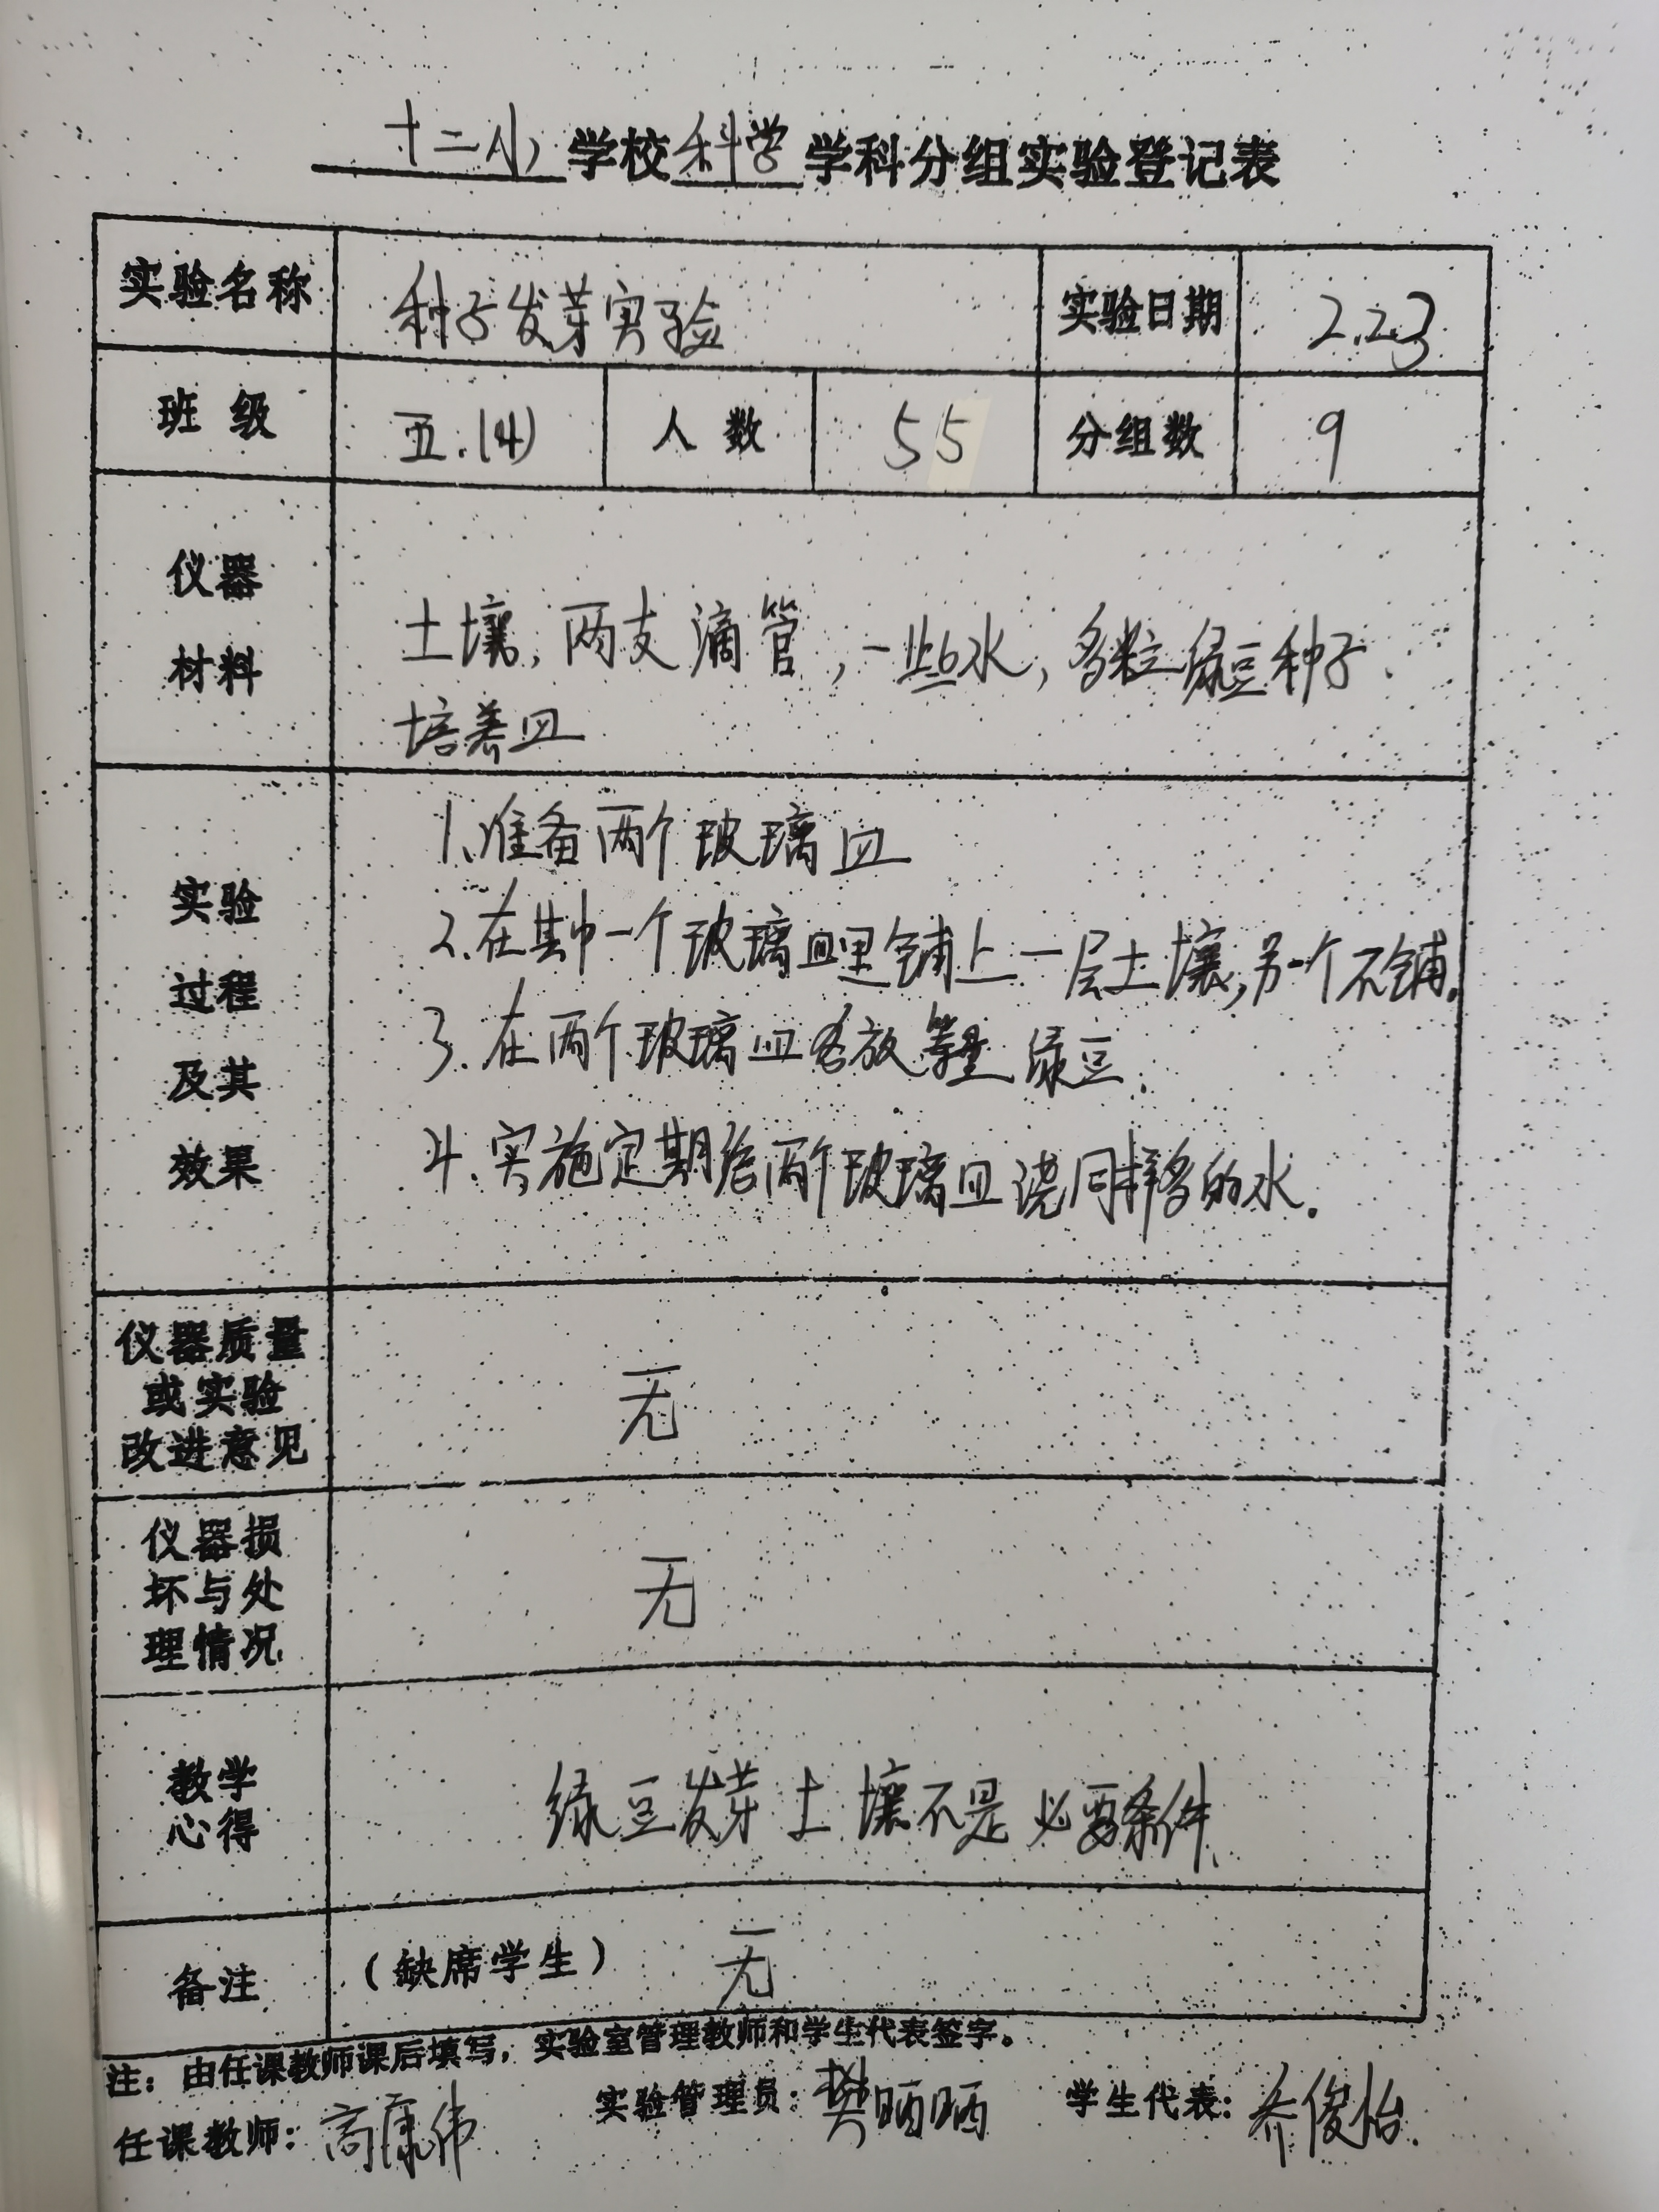 十二小学校科学学科分组实验登记表
实验名称 种子发芽实验 实验日期 2.23
班级 五.(4) 人数 55 分组数 9
仪器
材料
土壤,两支滴管,一些水,多粒绿豆种子.
培养皿
实验
过程
及其
效果
1.准备两个玻璃皿
2.在其中一个玻璃皿里铺上一层土壤,另一个不铺。
3.在两个玻璃皿各放等量绿豆.
4.实施定期给两个玻璃皿浇同样多的水.
仪器质量
或实验
改进意见
无
仪器损
坏与处
理情况
无
教学
心得
绿豆发芽土壤不是必要条件.
备注 (缺席学生) 无
注:由任课教师课后填写,实验室管理教师和学生代表签字。
任课教师:高康伟 实验管理员:樊晒晒 学生代表:乔俊怡.